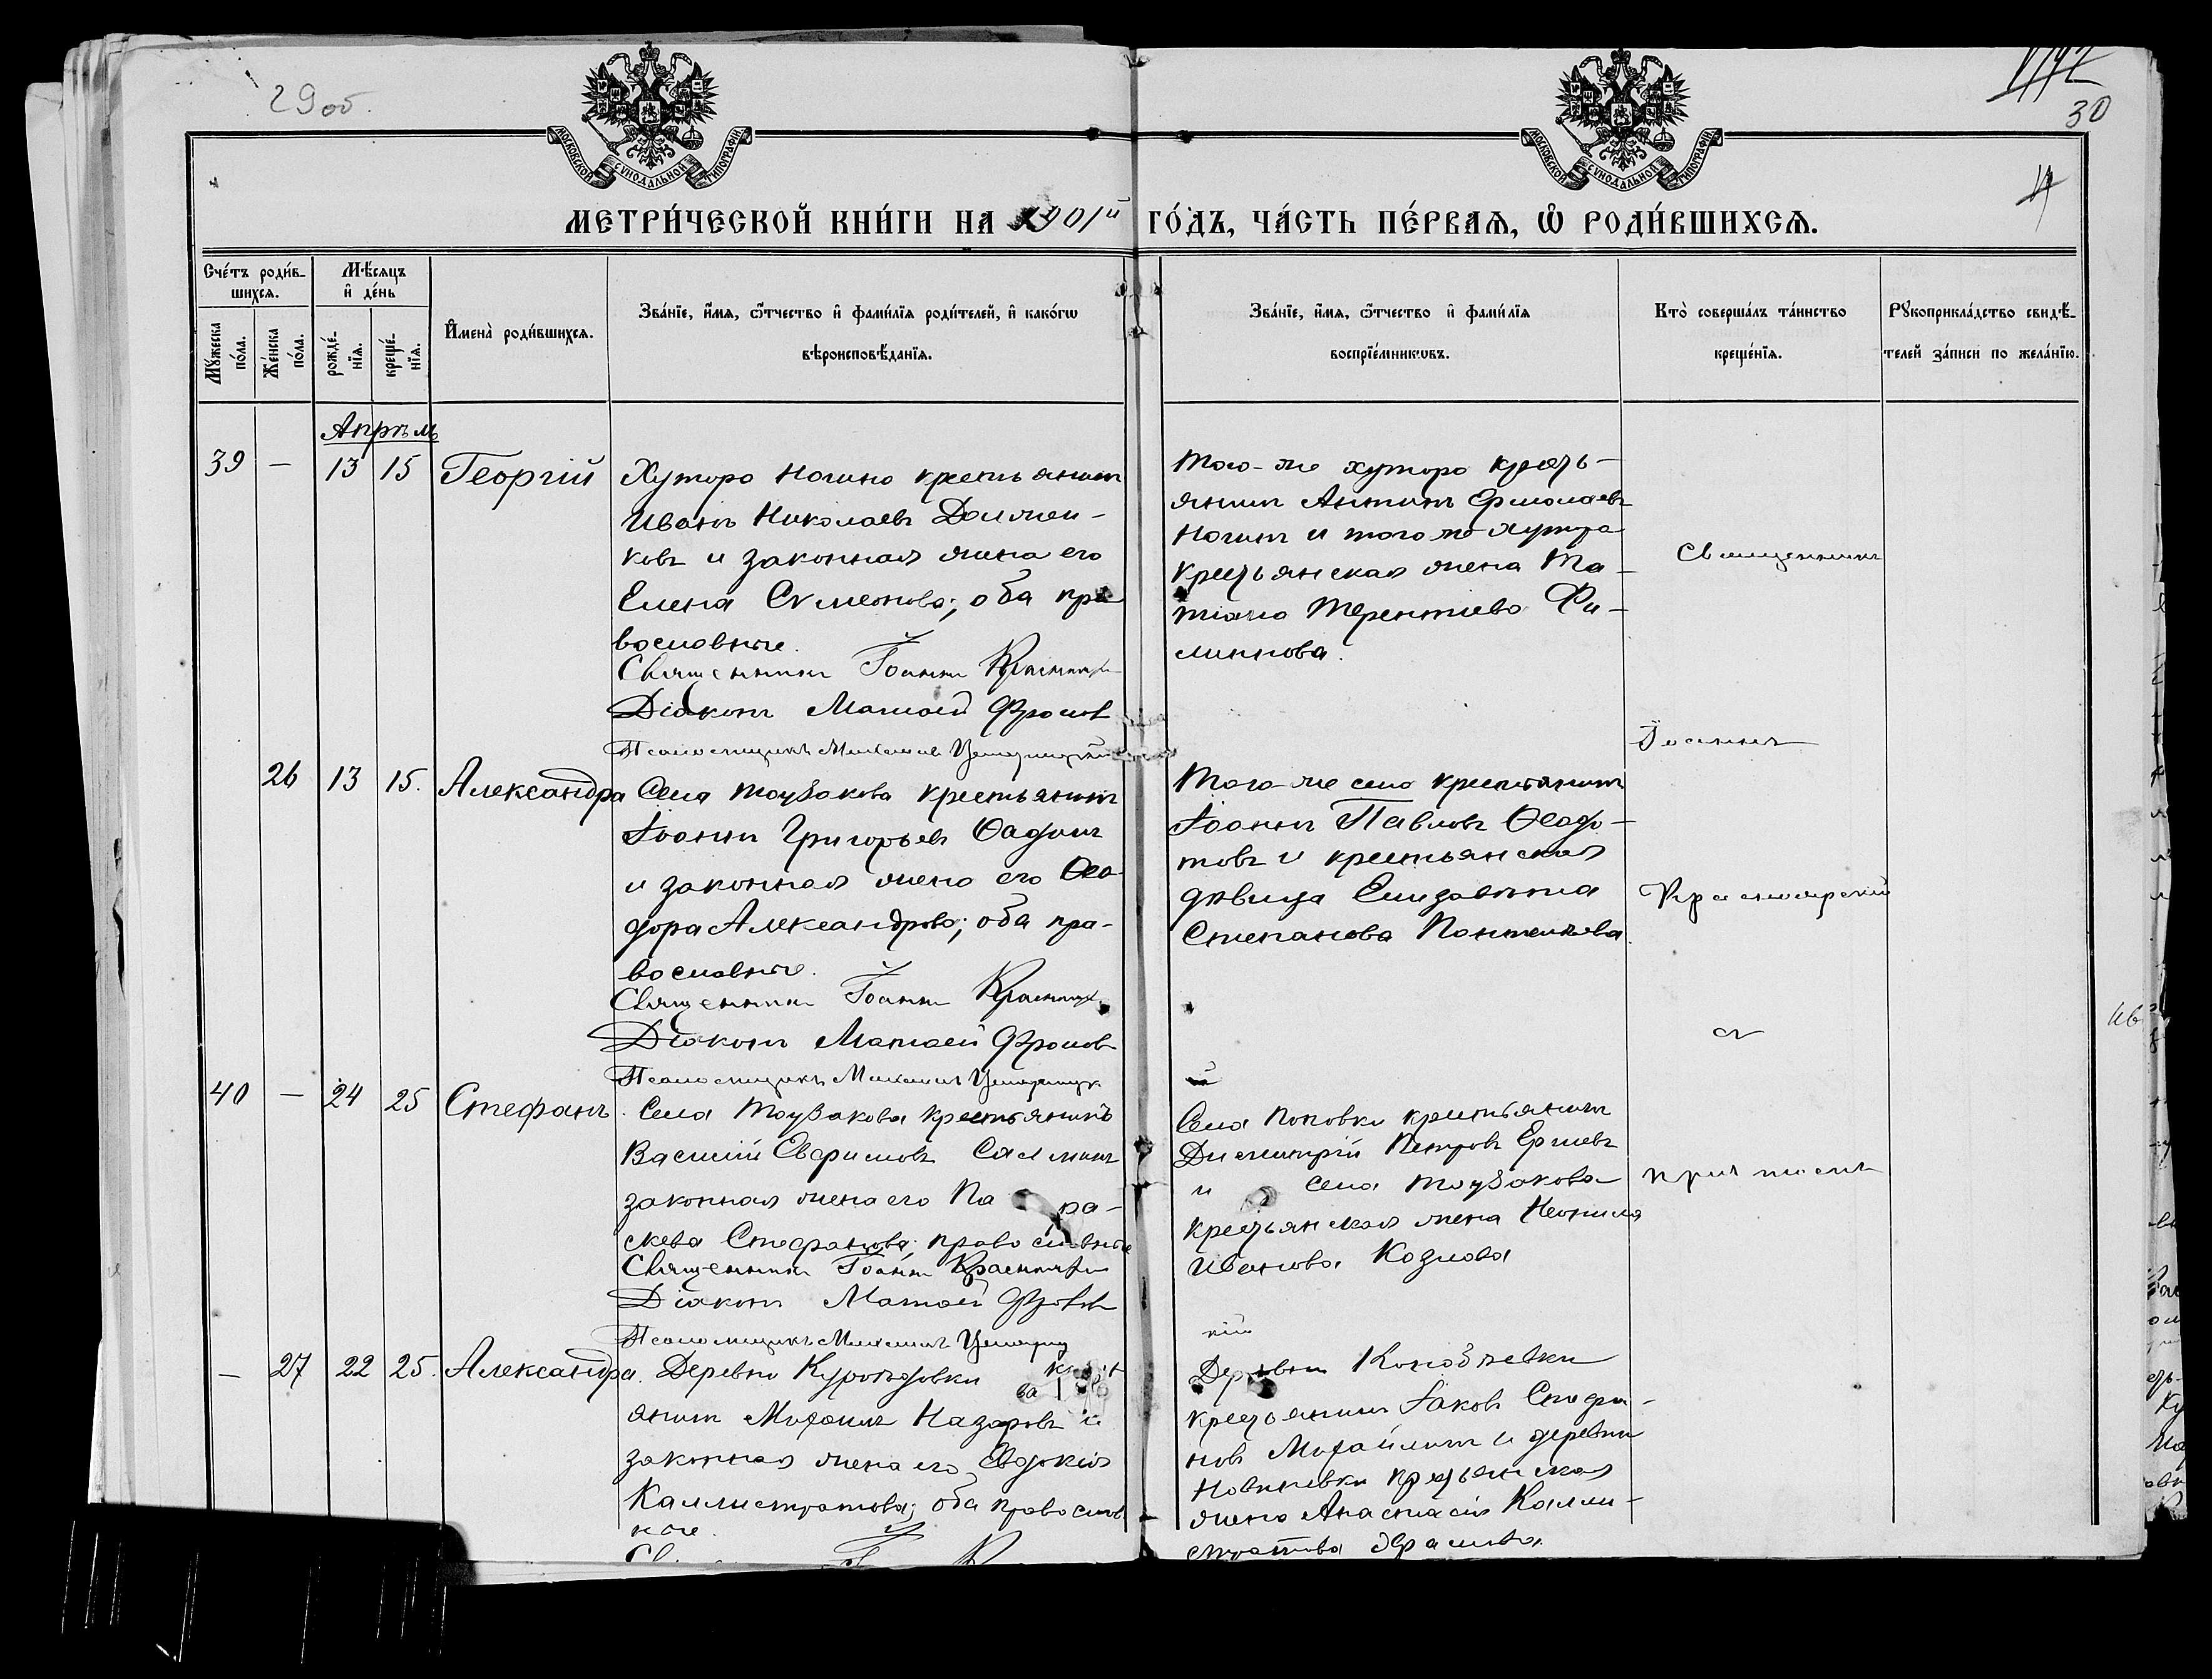 29 об.
30
МОСКОВСКОЙ СѴНОДАЛЬНОЙ ТИПОГРАФІИ
МОСКОВСКОЙ СѴНОДАЛЬНОЙ ТИПОГРАФІИ
МЕТРИ́ЧЕСКОЙ КНИ́ГИ НА 1901й ГО́ДЪ, ЧА́СТЬ ПЕ́РВАѦ, Ѽ РОДИ́ВШИХСѦ.
Сче́тъ роди́в-
шихсѧ.
Мꙋ́жеска по́ла.
Же́нска по́ла.
Мѣ́сѧцъ
и҆ де́нь
рожде́-
нїѧ.
креще́-
нїѧ.
И҆мена̀ роди́вшихсѧ.
Зва́нїе, и҆́мѧ, ѻ҆́тчество и҆ фами́лїѧ роди́телей, и҆ како́гѡ
вѣроисповѣ́данїѧ.
Зва́нїе, и҆́мѧ, ѻ҆́тчество и҆ фами́лїѧ
воспрїе́мникѡвъ.
Кто̀ соверша́лъ та́инство
креще́нїѧ.
Рꙋкоприкла́дство свидѣ́-
телей за́писи по жела́нїю.
Апрѣль
39 — 13 15 Георгій
Хутора Ногина крестьянинъ
Иванъ Николаевъ
ковъ и законная жена его
Елена Сѵмеонова; оба пра
вославные.
Священникъ Іоаннъ
Діаконъ Матѳей Фроловъ
Псаломщикъ Михаилъ
Того-же хутора кресть-
янинъ Антонъ Ермолаевъ
Ногинъ и того же хутора
крестьянская жена Та-
тіана Терентіева Фи-
липпова.
Священникъ
Іоаннъ
26 13 15. Александра
Села Тоузакова крестьянинъ
Іоаннъ Григорьевъ
и законная жена его Ѳео-
дора Александрова; оба пра-
вославные.
Священникъ Іоаннъ
Діаконъ Матѳей Фроловъ
Псаломщикъ Михаилъ
Того-же села крестьянинъ
Іоаннъ Павловъ Ѳеодо-
товъ и крестьянская
дѣвица Елизавета
Степанова Пантелеева.
съ
40 — 24 25 Стефанъ.
Села Тоузакова крестьянинъ
Василій Евфимовъ
законная жена его Па ра-
скева Стефанова; православные
Священникъ Іоаннъ
Діаконъ Матѳей Фроловъ
Псаломщикъ Михаилъ
Села Поповки крестьянинъ
Димитрій Петровъ
и села Тоузакова
крестьянская жена Неонила
Иванова Козлова
причтомъ
— 27 22 25. Александра.
Деревни
янинъ Михаилъ Назаровъ и
законная жена его Евдокія
Каллистратова; оба православ
ные.
Деревни
крестьянинъ Іаковъ Стефа-
новъ Михайлинъ и деревни
крестьянская
жена Анастасія Калли-
стратова